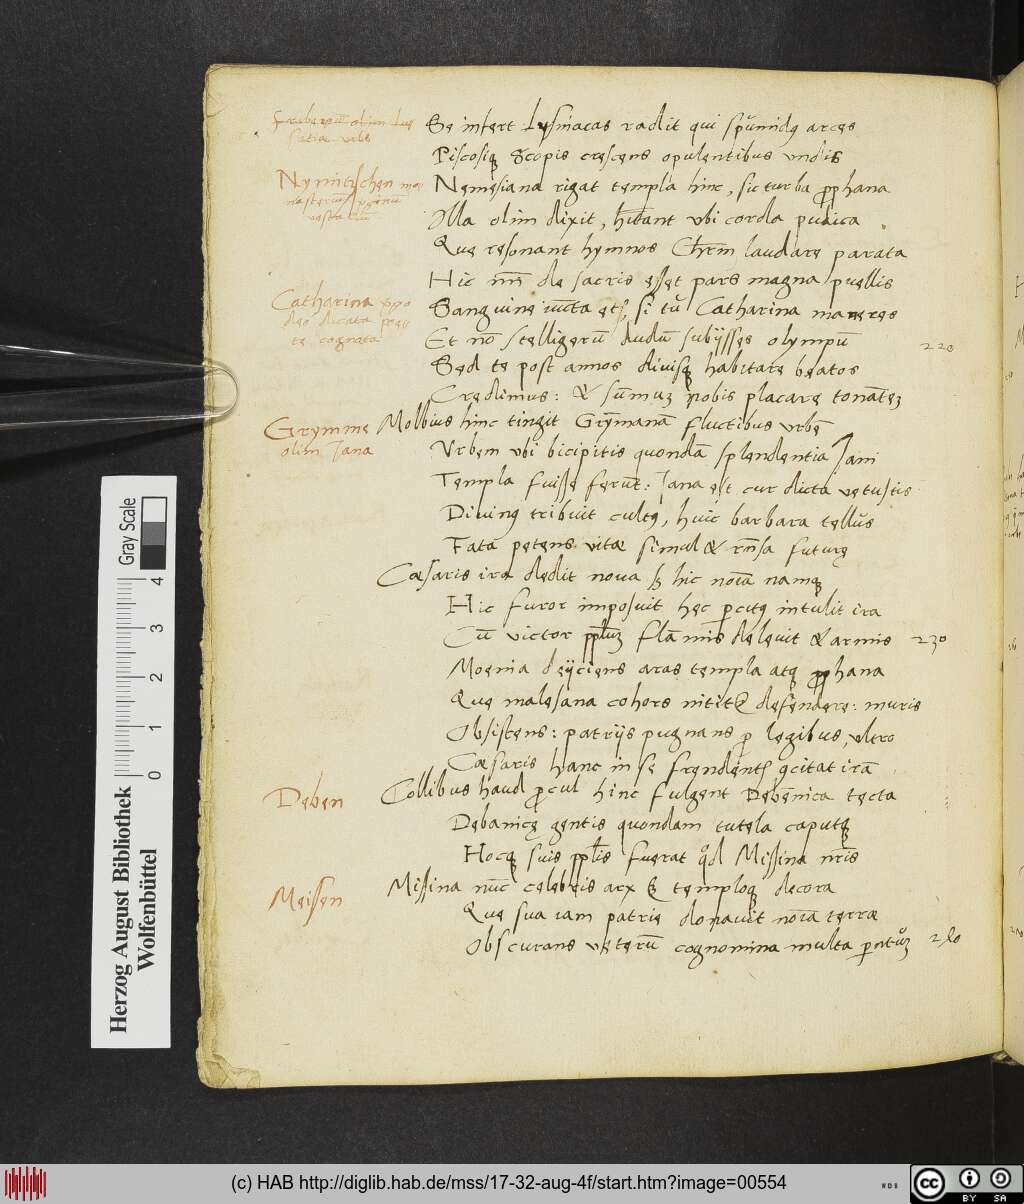 Friberga olim Lusatiæ urbs
Se infert Lysinacas radit qui spumidꝫ arces
Piscosiqꝫ Scopis crescens opulentibus undis
Nymitzschen monasteriũ
Nemesiana rigat templa hinc, sic turba ꝓphana
Illa olim dixit, hĩtant vbi corda pudica
Que resonant hymnos Chr̃m laudare parata
Hic nr̃i de sacris esset pars magna puellis
Catharina
deo dicata poetę cognata
Sanguine iũcta et, si tũ Catharina maneres
Et nõ stelligerũ dudũ subijsses olympũ 220
Sed te post annos diuisqꝫ habitare beatos
Credimus: & sũmuꝫ nobis placare tonãteꝫ
Grymme
olim Jana
Molbius hinc tingit Grỹmanã fluctibus vrbẽ
Vrbem vbi bicipitis quondã splendentia Jani
Templa fuisse ferũt: Jana est cur dicta vetustis
Diuinꝰ tribuit cultꝰ, huic barbara tellus
Fata petens vitæ simul & rñsa futurę
Cæsaris ira dedit noua hic noĩa namqꝫ
Hic furor imposuit hęc ꝑcitꝰ intulit ira
Cũ victor pp̃lm flãmis deleuit & armis 230
Moenia deijciens aras templa atqꝫ ꝓphana
Que malesana cohors nititur defendere: muris
Obsistens: patrijs pugnans ꝓ legibus, vltro
Cæsaris hanc in se frendentis ꝯcitat irã
Deben
Collibus haud ꝓcul hinc fulgent Debẽnica tecta
Debanicę gentis quondam tutela caputqꝫ
Hocqꝫ suis pp̃lis fuerat qd Missina nr̃is
Meissen
Missina nũc celebris arx & temploqꝫ decora
Que sua iam patrie donauit noĩa terræ
Obscurans veterũ cognomina multa parentuꝫ 240
Gray Scale
4 3 2 1 0
Herzog August Bibliothek
Wolfenbüttel
(c) HAB http://diglib.hab.de/mss/17-32-aug-4f/start.htm?image=00554
cc BY SA